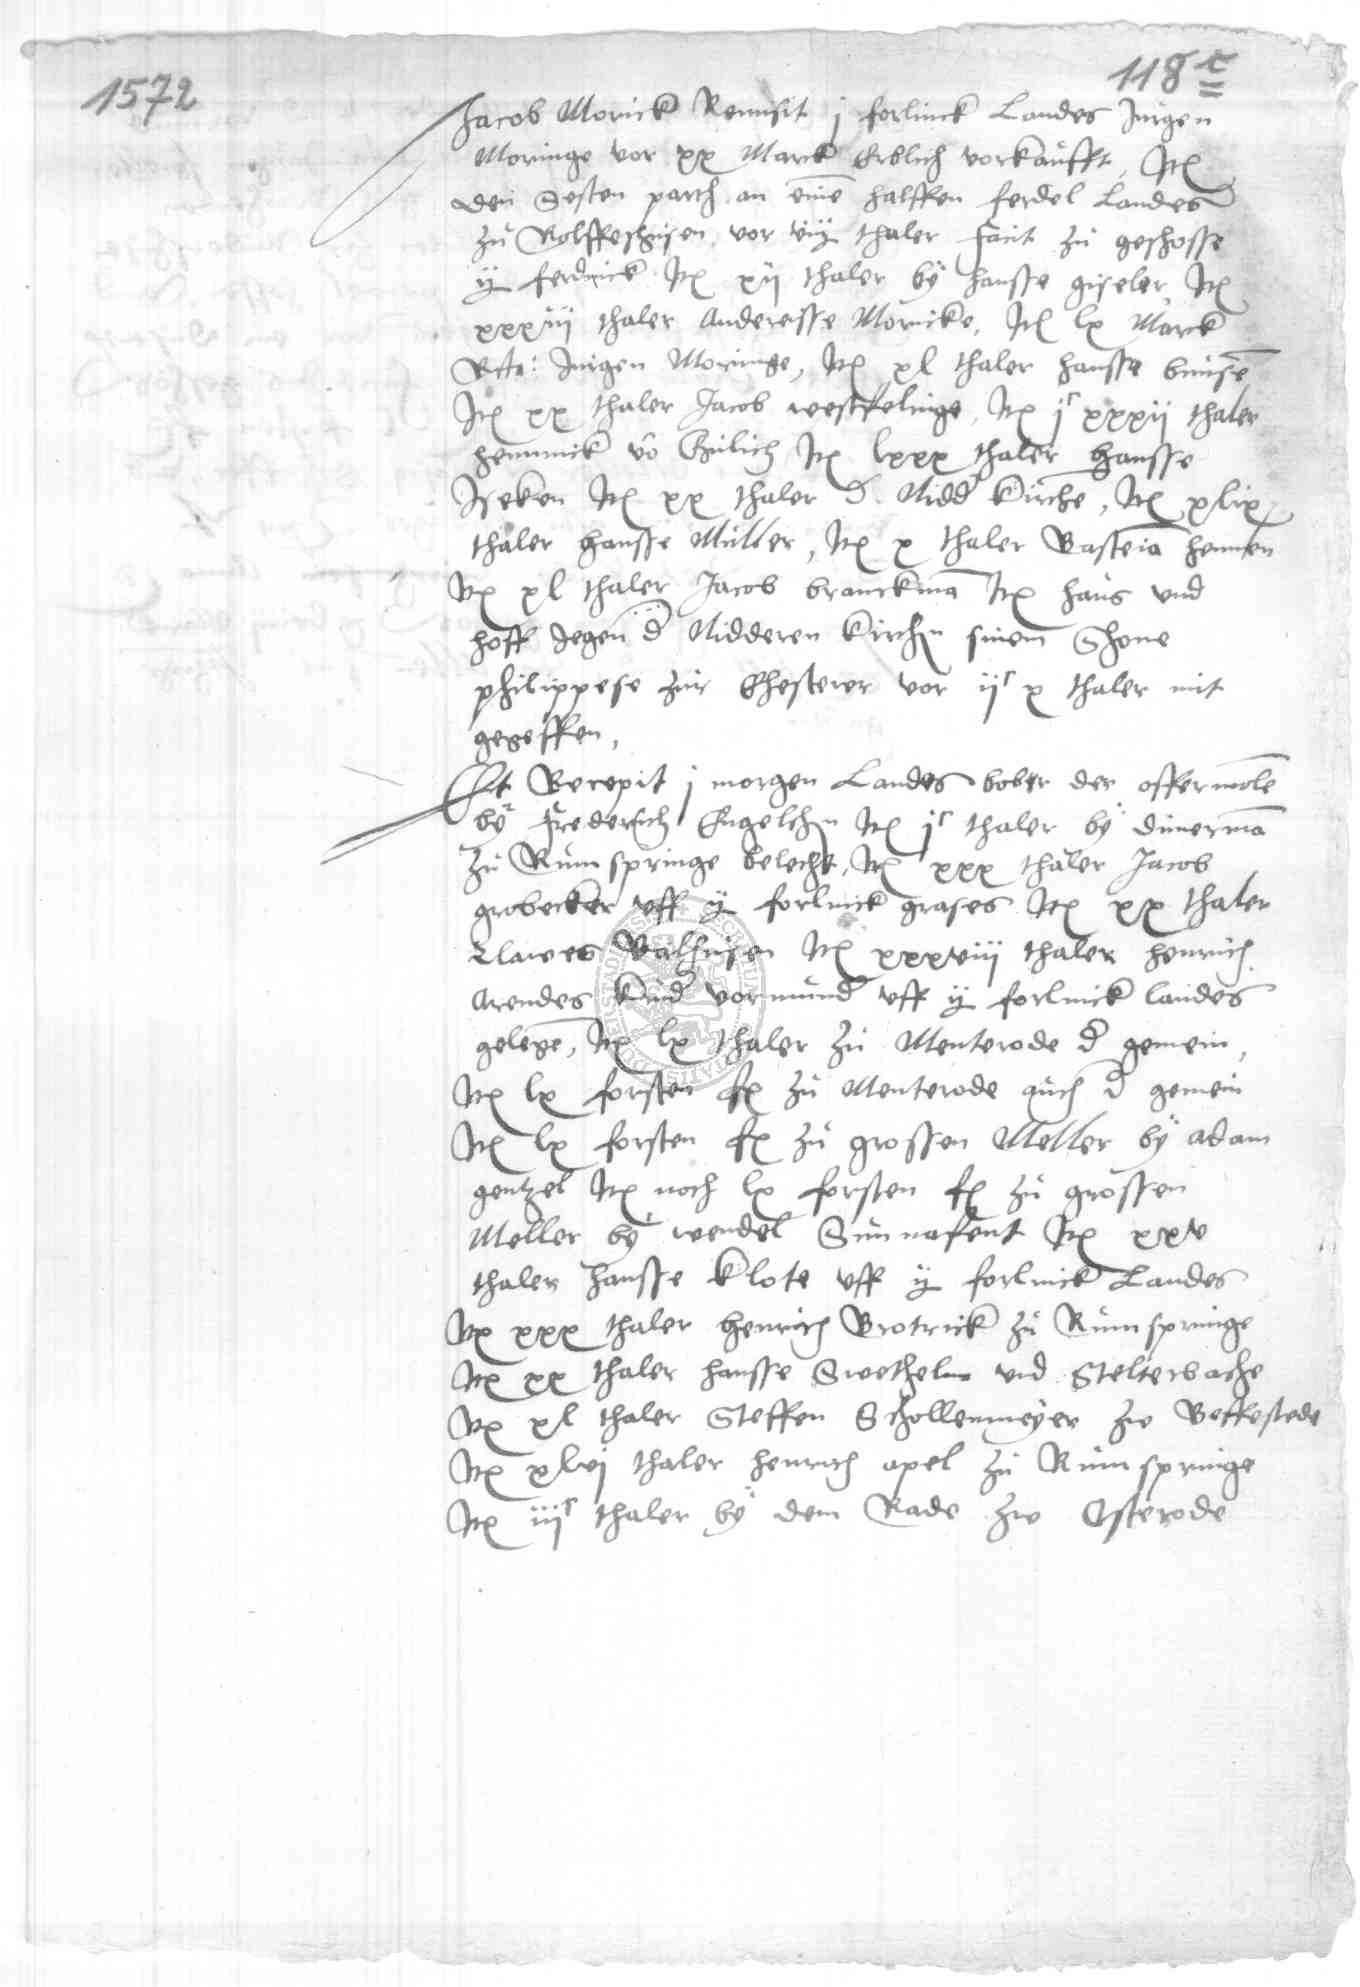 1572
118 c
Jacob Morick Remisit j forlinck Landes Jurgen
Moringe vor xx Marck Erblich vorkaufft, Itē
den Sesten parth an einē halffen ferdel Landes
zu Rolffeshusen vor viij thaler facit zu geschosse
ij ferdinck Itē xij thaler by hansse giseler Itē
xxxvij thaler Anderesse Moricke, Itē lx Marck
Jurgen Moringe, Itē xl thaler hansse
Itē xx thaler Jacob westfelinge, Itē jc xxxij thaler
henninck vō Itē lxxx thaler Hansse
Iseken Itē xx thaler d. Nidd kirche, Itē xlix
thaler Hansse Muller, Itē x thaler Bastein hennen
Itē xl thaler Jacob branckmā Itē haus vnd
hoff Jegen d Nidderen kirchen sinem Shone
philippese zur Ehesteuer vor ijc x thaler mit
gegeffen,
Et Recepit j morgen Landes bober der offermole
by Frederich Engelhen Itē jc thaler by
zu Rumspringe belecht, Itē xxx thaler Jacob
grobecker vff ij forlinck grases Itē xx thaler
Clawes Walhusen Itē xxxviij thaler henrich
Arendes kind vormund vff ij forlinck landes
gelegē, Itē lx thaler zu Menterode d gemein,
Itē lx forsten fl zu Menterode auch d gemein
Itē lx forsten fl zu grossen Meller by Adam
gentzel Itē noch lx forsten fl zu grossen
Meller by wendel Sunnafent Itē xxv
thaler hansse klote vff ij forlinck Landes
Itē xxx thaler Henrich Brotrick zu Rumspringe
Itē xx thaler hansse Swethelm vnd Stelterbache
Itē xl thaler Steffen Schollenmeyer zw Beffestede
Itē xlvj thaler henrich apel zu Rumspringe
Itē iijc thaler by dem Rade zw Osterode